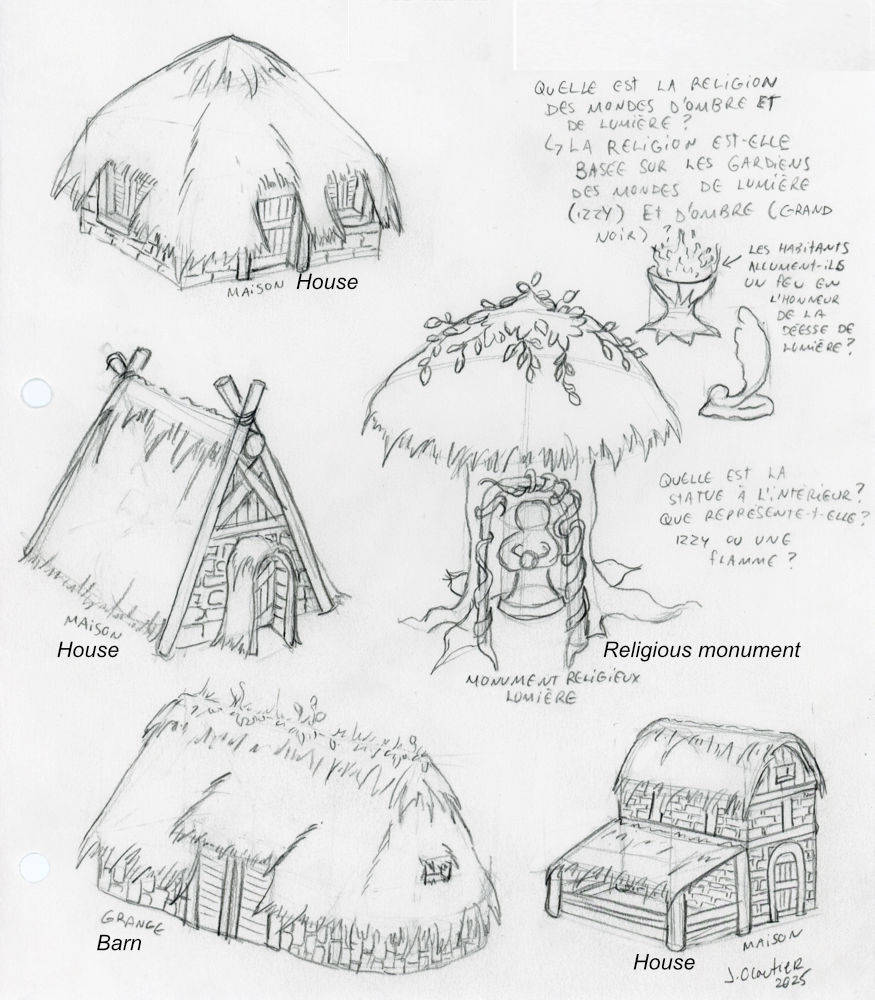 QUELLE EST LA RELIGION
DES MONDES D'OMBRE ET
DE LUMIÈRE ?
↳ LA RELIGION EST-ELLE
BASÉE SUR LES GARDIENS
DES MONDES DE LUMIÈRE
(IZZY) ET D'OMBRE (GRAND
NOIR) ?
← LES HABITANTS
ALLUMENT-ILS
UN FEU EN
L'HONNEUR
DE LA
DÉESSE DE
LUMIÈRE ?
MAISON
House
QUELLE EST LA
STATUE À L'INTÉRIEUR ?
QUE REPRÉSENTE-T-ELLE ?
IZZY OU UNE
FLAMME ?
MAISON
House
Religious monument
MONUMENT RELIGIEUX
LUMIÈRE
GRANGE
Barn
MAISON
House
J. Cloutier
2025